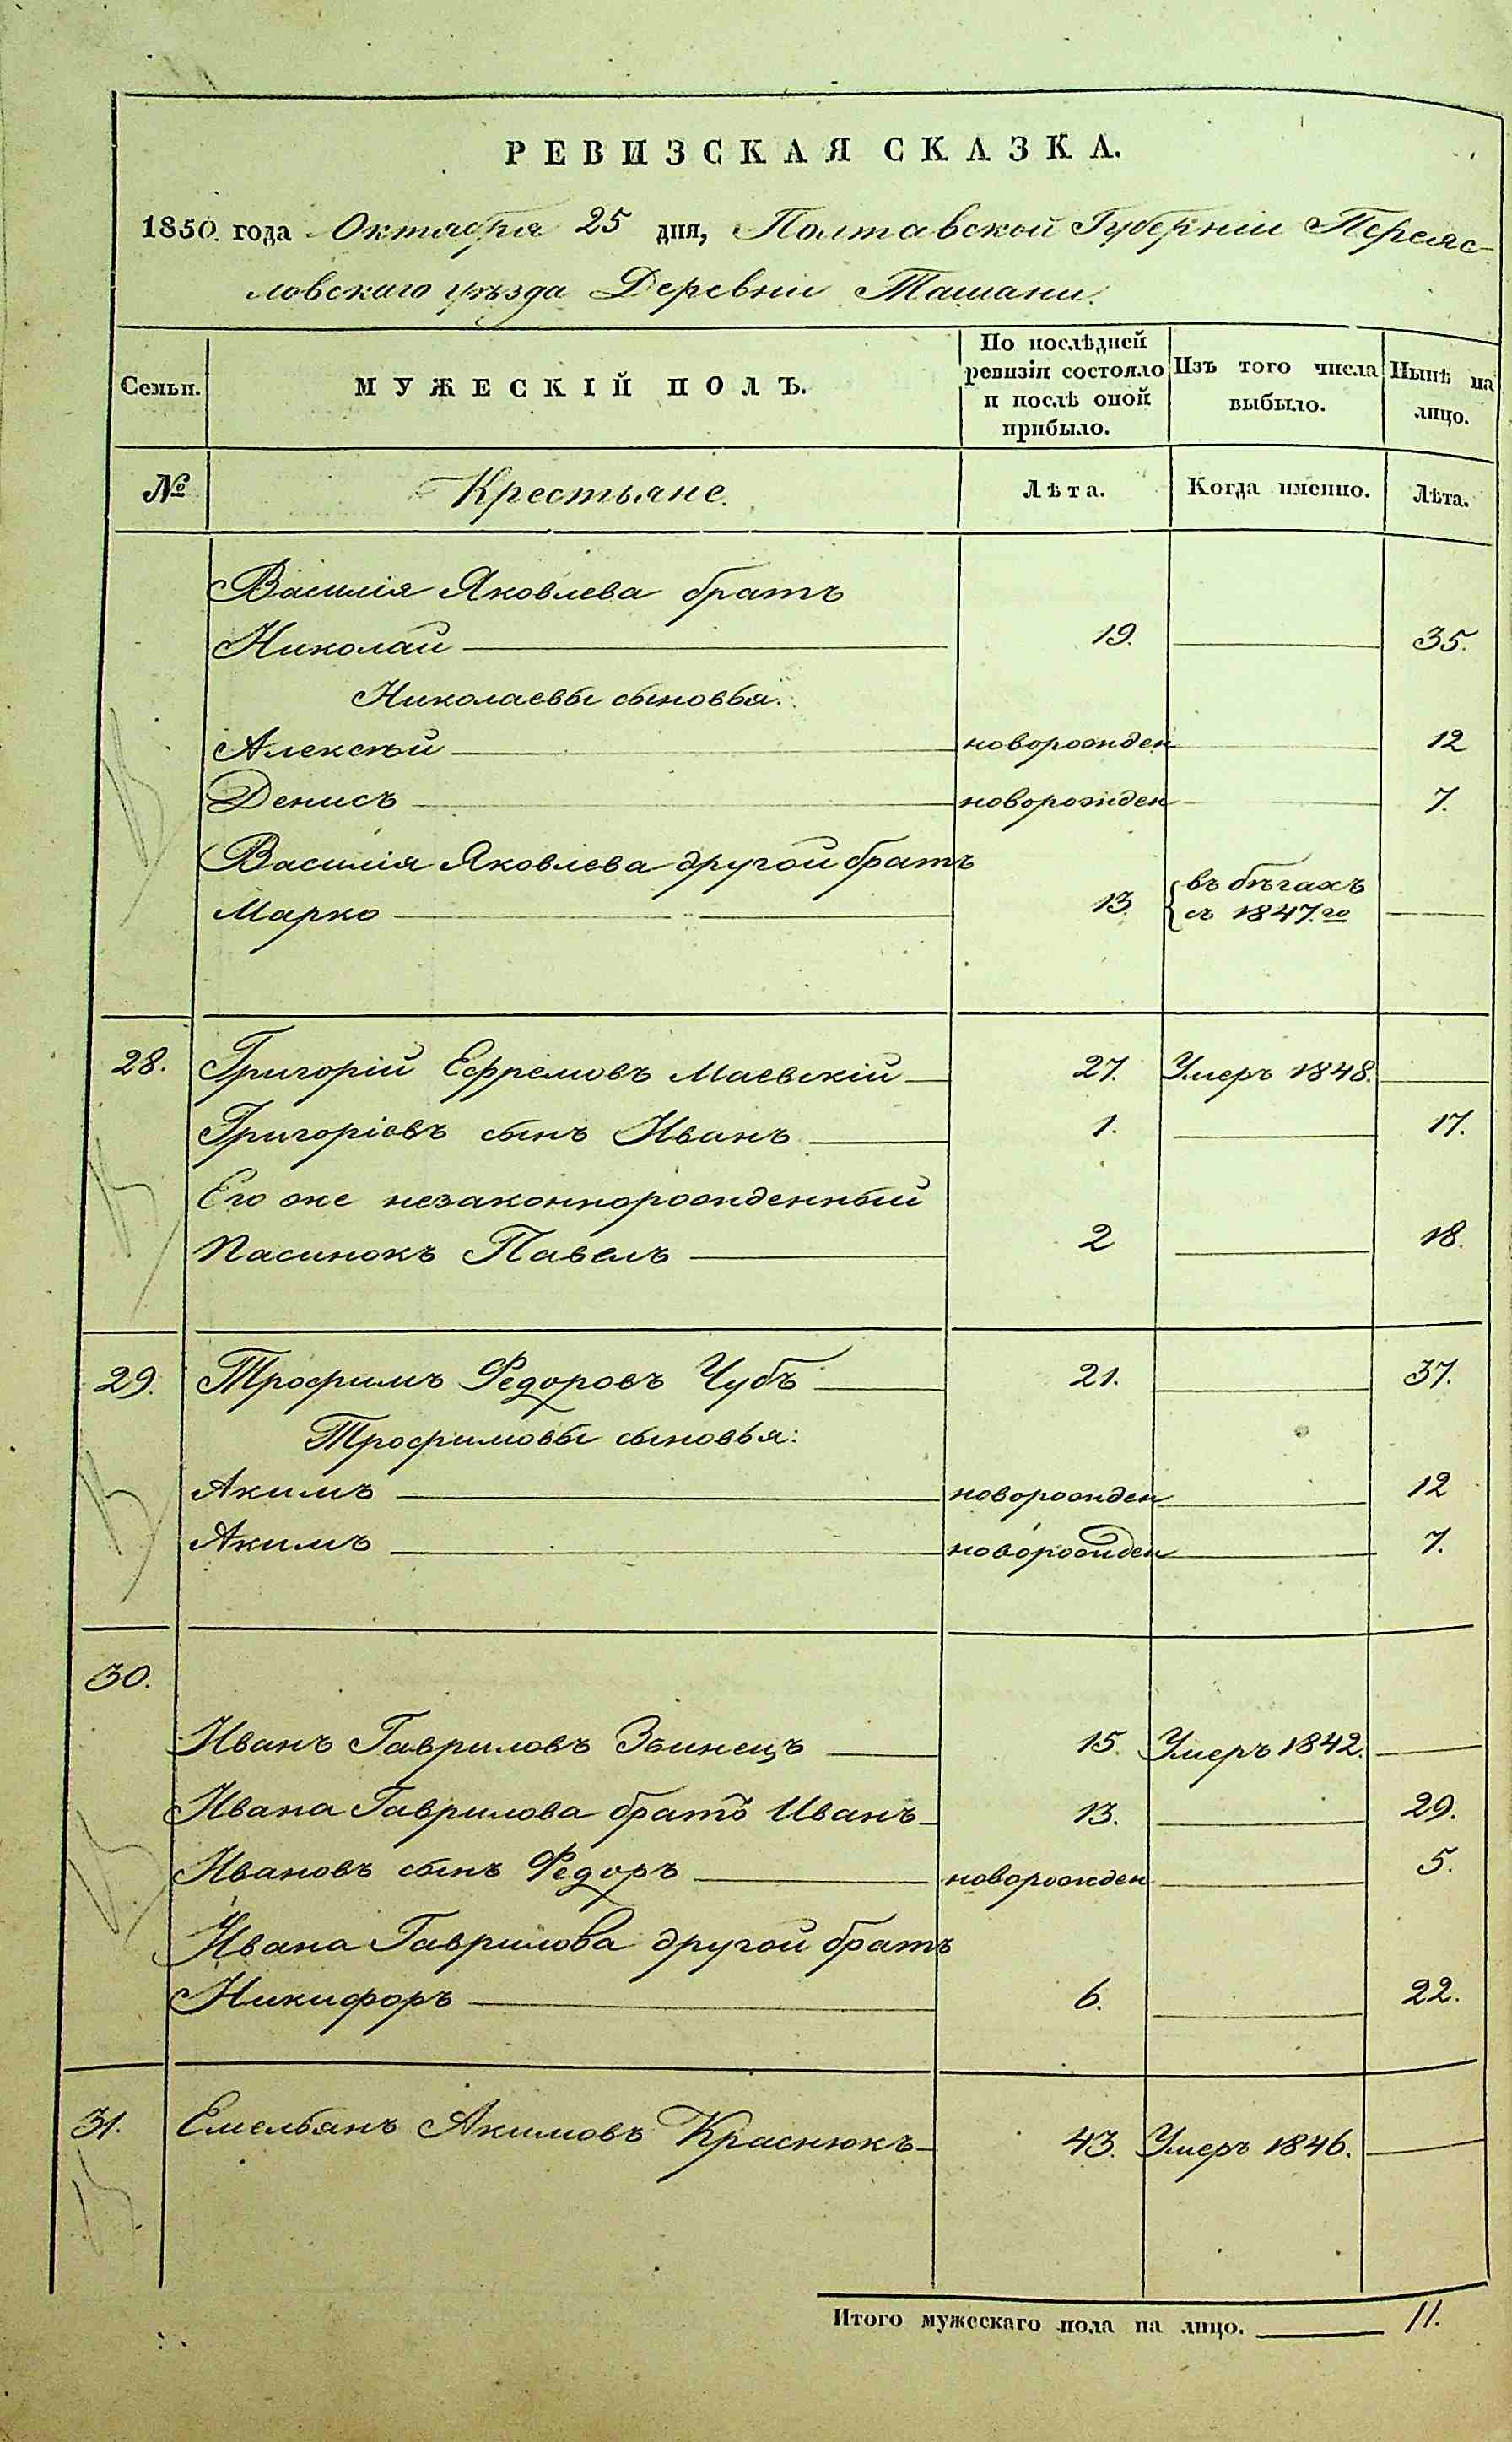 РЕВИЗСКАЯ СКАЗКА.
1850. года Октября 25 дня, Полтавской Губерніи Переяс-
ловскаго уѣзда Деревни Ташани.
Семьи. МУЖЕСКІЙ ПОЛЪ. По послѣдней ревизіи состояло и послѣ оной прибыло. Изъ того числа выбыло. Нынѣ на лицо.
№ Крестьяне. Лѣта. Когда именно. Лѣта.
Василія Яковлева братъ
Николай 19. 35.
Николаевы сыновья:
Алексѣй новорожден 12
Денисъ новорожден 7.
Василія Яковлева другой братъ
Марко 13. въ бѣгахъ
съ 1847.го
28. Григорій Ефремовъ Маевскій 27. Умеръ 1848.
Григоріевъ сынъ Иванъ 1. 17.
Его же незаконнорожденный
Пасинокъ Павелъ 2 18.
29. Трофимъ Федоровъ Чубъ 21. 37.
Трофимовы сыновья:
Акимъ новорожден 12
Акимъ новорожден 7.
30.
Иванъ Гавриловъ Звинецъ 15. Умеръ 1842.
Ивана Гаврилова братъ Иванъ 13. 29.
Ивановъ сынъ Федоръ новорожден 5.
Ивана Гаврилова другой братъ
Никифоръ 6. 22.
31. Емельянъ Акимовъ Краснюкъ 43. Умеръ 1846.
Итого мужескаго пола на лицо. 11.